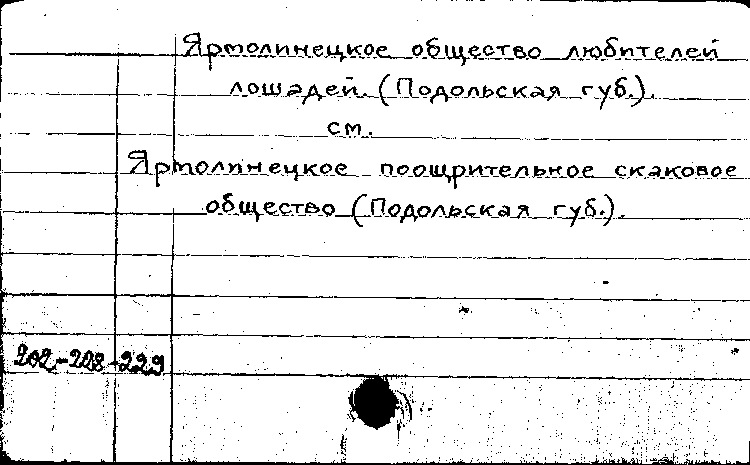 Ярмолинецкое общество любителей
лошадей. (Подольская губ.).
см.
Ярмолинецкое поощрительное скаковое
общество (Подольская губ.).
202-228-229